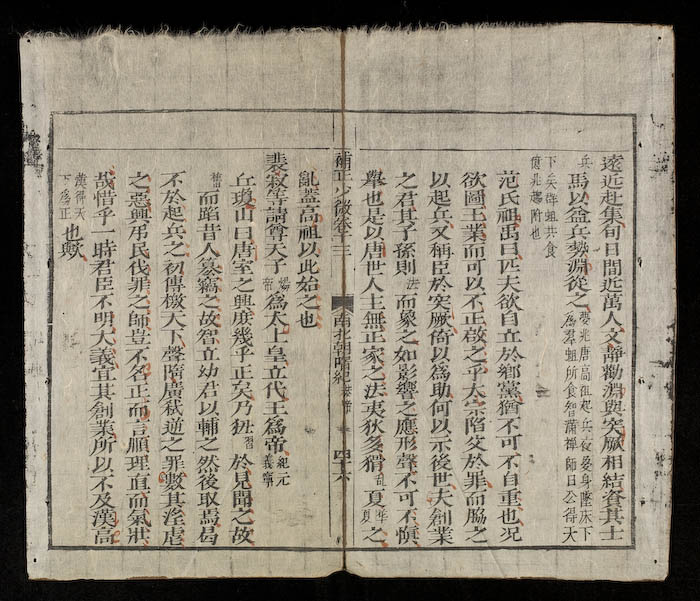 遠近赴集旬日間近萬人文静勸淵與突厥相結資其士
兵馬以益兵勢淵從之
夢兆唐高祖起兵夜夢身墜床下
為羣蛆所食智滿禪師曰公得天
下矣牀蛆共食
億兆趍附也
范氏祖禹曰匹夫欲自立於鄉黨猶不可不自重也况
欲圖王業而可以不正啟之乎太宗陷父於罪而脇之
以起兵又稱臣於突厥倚以為助何以示後世夫創業
之君其子孫則法而象之如影響之應形聲不可不慎
舉也是以唐世人主無正家之法夷狄多猾夏之
亂華夏
亂蓋高祖以此始之也
裴寂等請尊天子煬帝為太上皇立代王為帝紀元義寧
丘瓊山曰唐室之興庶幾乎正矣乃狃習於見聞之故
舊而蹈昔人簒竊之故智立幼君以輔之然後取焉曷
不於起兵之初傳檄天下聲隋廣弑逆之罪數其淫虐
之惡興弔民伐罪之師豈不名正而言順理直而氣壯
哉惜乎一時君臣不明大義宜其創業所以不及漢高
漢得天下為正也歟
甫正少微卷十三
南北朝隋紀恭帝
四十六